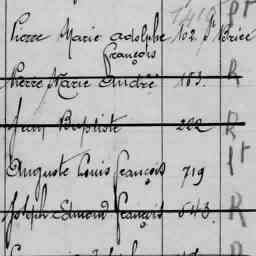 Pierre Marie Adolphe 102 St Brice
François
Pierre Marie André 183. R
Jean Baptiste 222 R
Auguste Louis François 719 pt
Joseph Edmond François 643. R
R